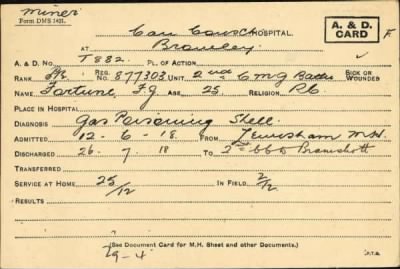 miner
Form DMS 1421.
Can Conv HOSPITAL.
A. & D. CARD
F
AT Bromley
A. & D. No. T 882. PL. OF ACTION
RANK Pte REG. No. 877303 UNIT 2nd C M G Battn SICK OR WOUNDED
NAME Fortune F J AGE 25 RELIGION R C
PLACE IN HOSPITAL
DIAGNOSIS Gas Poisoning Shell.
ADMITTED 12-6-18. FROM Lewisham M.H.
DISCHARGED 26. 7. 18 TO 2nd C C D Bramshott
TRANSFERRED
SERVICE AT HOME 25/12 IN FIELD 2/12
RESULTS
(See Document Card for M.H. Sheet and other Documents.) P.T.O.